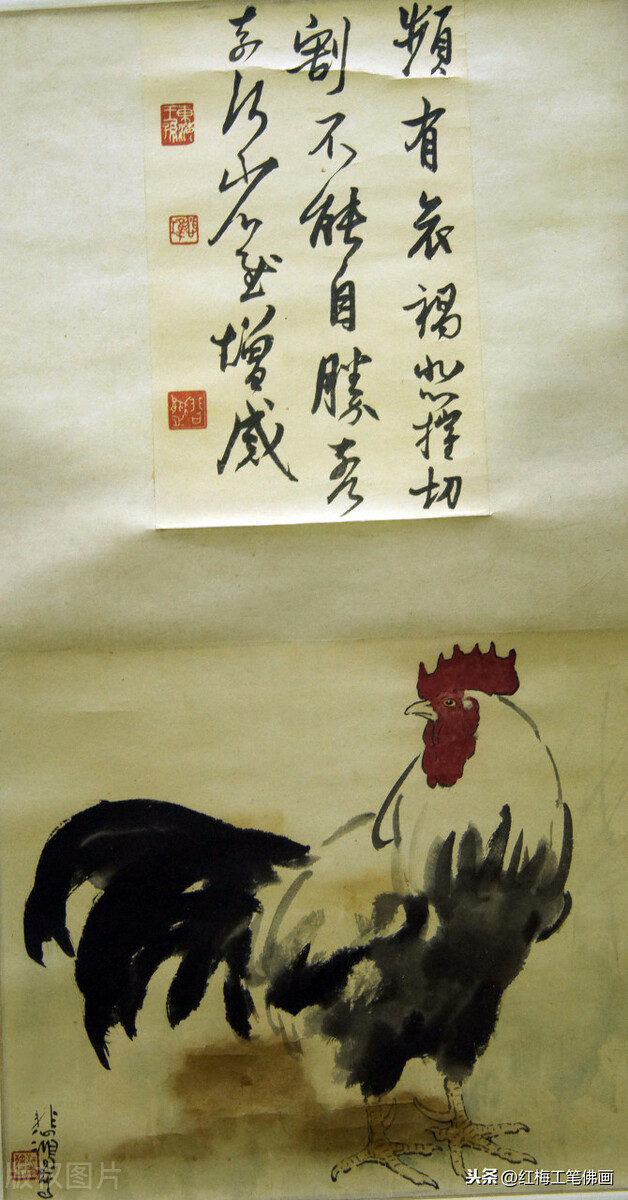 頻有哀禍悲摧切
割不能自勝奈
何省慰增感
悲鴻
版权图片
头条@红梅工笔佛画